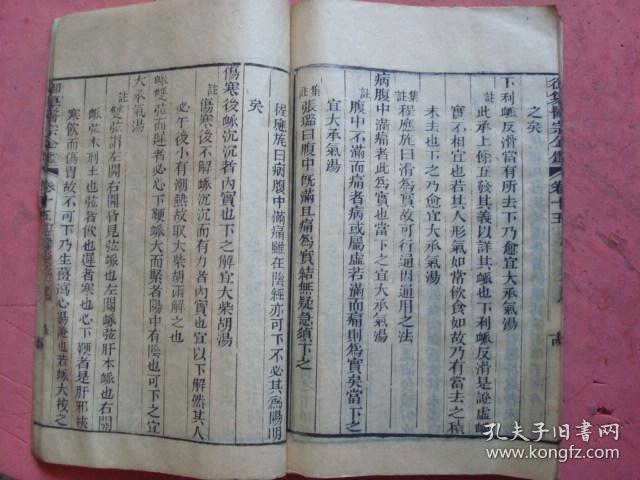 御纂醫宗金鑑 卷十五
之矣
下利脈反滑當有所去下乃愈宜大承氣湯
註此承上條互發其義以詳其脈也下利脈反滑是證虛脈
實不相宜也若其人形氣如常飲食如故乃有當去之積
未去也下之乃愈宜大承氣湯
集註程應旄曰滿而痛爲實故可行通因通用之法
病腹中滿痛者此爲實也當下之宜大承氣湯
註腹中不滿而痛者病或屬虛若滿而痛則爲實矣當下之
宜大承氣湯
集註張璐曰腹中旣滿且痛爲實結無疑急須下之
程應旄曰病腹中滿痛雖在陰經亦可下不必其爲陽明
矣
傷寒後脈沉沉者內實也下之解宜大柴胡湯
註傷寒後不解脈沉沉而有力者內實也宜以下解然其人
必午後小有潮熱故取大柴胡兩解之也
脈雙弦而遲者必心下鞕脈大而緊者陽中有陰也可下之宜
大承氣湯
註雙弦謂左關右關皆見弦脈也左關脈弦肝本脈也右關
脈弦木刑土也弦者飲也遲者寒也心下鞕者是肝邪挾
寒飲而傷胃故不可下乃生薑瀉心湯證也若脈大按之
御纂醫宗金鑑 卷十五
孔夫子旧書网
www.kongfz.com